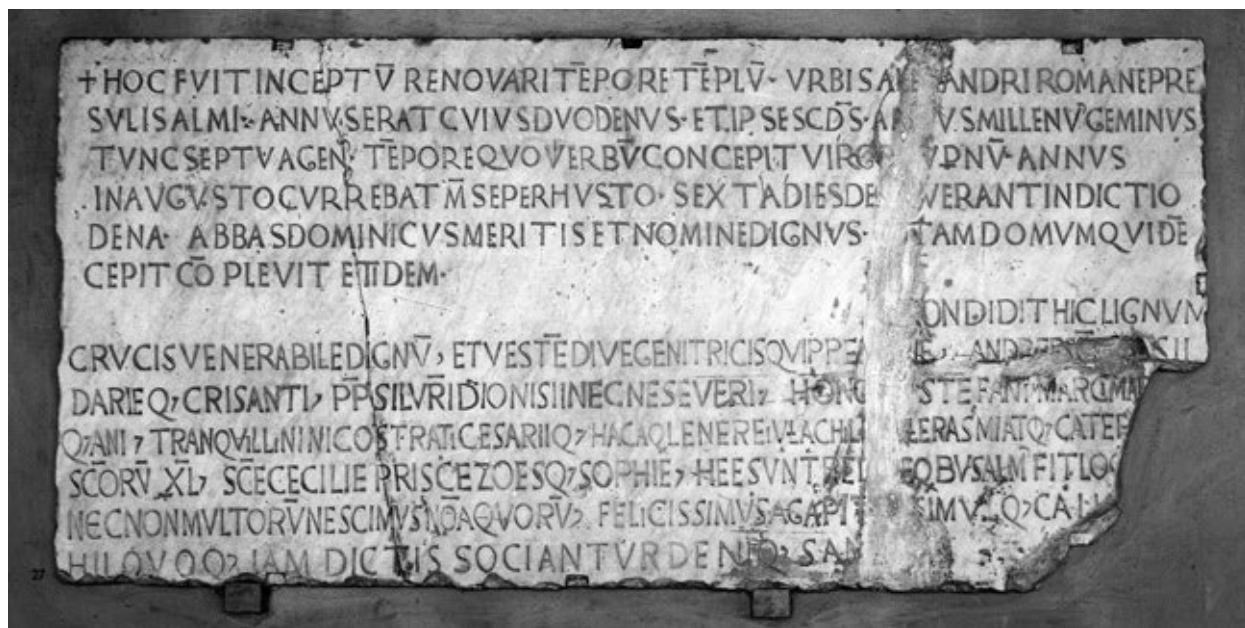 +HOC FVIT INCEPTV̄ RENOVARI TĒPORE TĒPLV̄· VRBIS ANDRI ROMANE PRE
SVLIS ALMI· ANNVS ERAT CVIVS DVODENVS· ET IPSE SCDS̄· VS MILLENV' GEMINVS
TVNC SEPTVAGEN' TĒPORE QVO VERBV̄ CONCEPIT VIRGO ANNVS
IN AVGVSTO CVRREBAT M̄SE PERHVSTO· SEXTA DIES VERANT INDICTIO
DENA· ABBAS DOMINICVS MERITIS ET NOMINE DIGNVS· TAM DOMVM QVI DĒ
CEPIT CŌPLEVIT ET IDEM·
ONDIDIT HIC LIGNVM
CRVCIS VENERABILE DIGNV̄, ET VESTĒ DIVE GENITRICIS QVIPPE
DARIEQ, CRISANTI, PP̄ SILVR̄I DIONISII NECNE SEVERI, STEFANI MARCI
Q, ANI, TRANQVILLINI NICOSTRATI CESARIIQ,
SC̄ORV̄ XL, SC̄E CECILIE PRISCE ZOESQ, SOPHIE, HEE SVNT
NECNON MVLTORV̄ NESCIMVS NŌA QVORV̄, FELICISSIMVS AGAPIT
IAM DICTIS SOCIANTVR DENIQ,